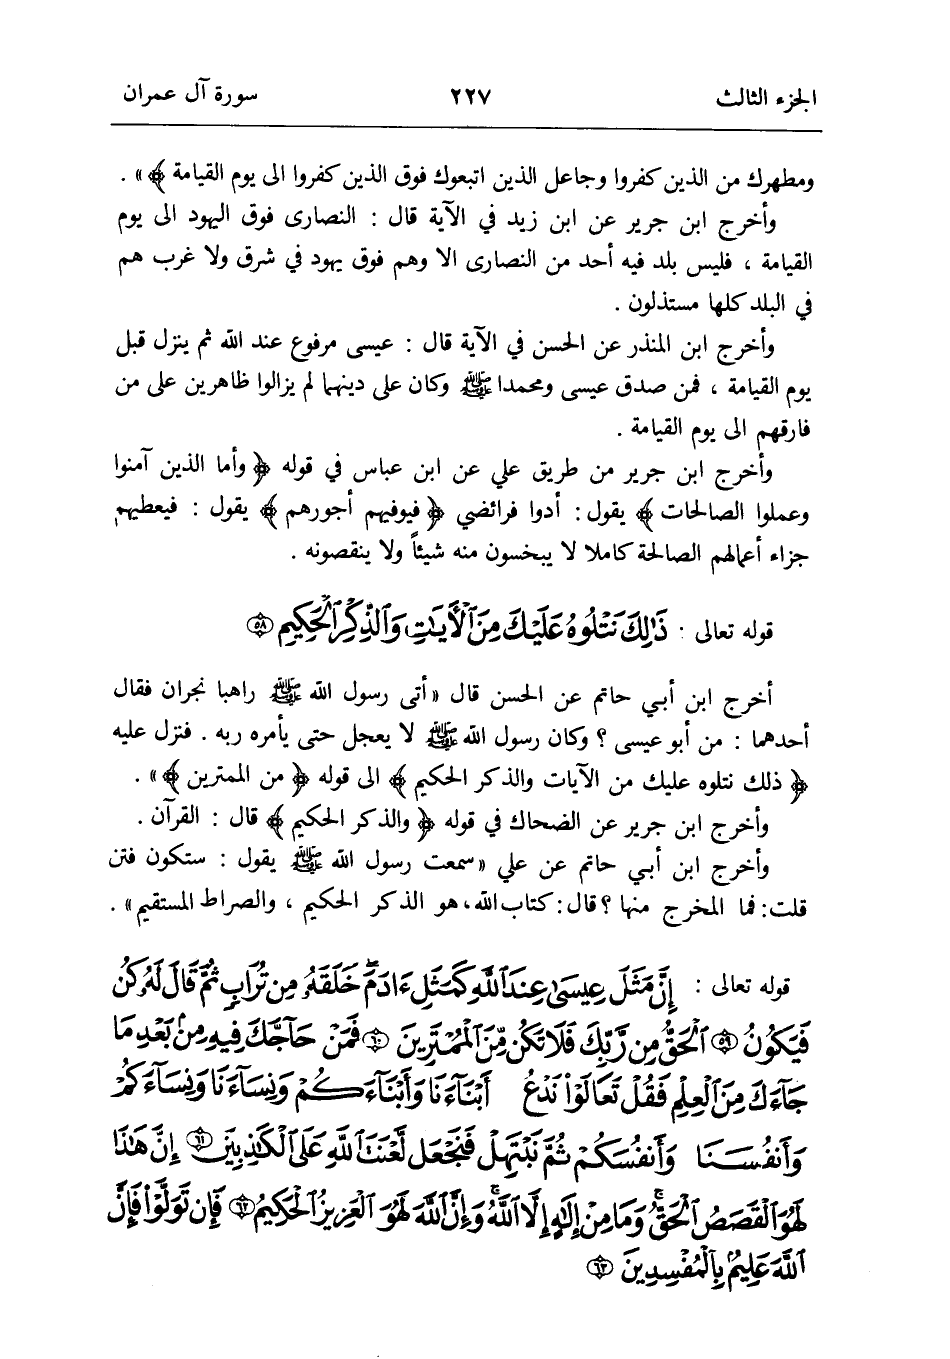 الجزء الثالث ٢٢٧ سورة آل عمران
ومطهرك من الذين كفروا وجاعل الذين اتبعوك فوق الذين كفروا الى يوم القيامة ﴾» .
وأخرج ابن جرير عن ابن زيد في الآية قال : النصارى فوق اليهود الى يوم
القيامة ، فليس بلد فيه أحد من النصارى الا وهم فوق يهود في شرق ولا غرب هم
في البلد كلها مستذلون .
وأخرج ابن المنذر عن الحسن في الآية قال : عيسى مرفوع عند الله ثم ينزل قبل
يوم القيامة ، فمن صدق عيسى ومحمدا ﷺ وكان على دينهما لم يزالوا ظاهرين على من
فارقهم الى يوم القيامة .
وأخرج ابن جرير من طريق علي عن ابن عباس في قوله ﴿ وأما الذين آمنوا
وعملوا الصالحات ﴾ يقول : أدوا فرائضي ﴿ فيوفيهم أجورهم ﴾ يقول : فيعطيهم
جزاء أعمالهم الصالحة كاملا لا يبخسون منه شيئاً ولا ينقصونه .
قوله تعالى : ذَٰلِكَ نَتْلُوهُ عَلَيْكَ مِنَ ٱلْأَيَٰتِ وَٱلذِّكْرِ ٱلْحَكِيمِ ۝٥٨
أخرج ابن أبي حاتم عن الحسن قال «أتى رسول الله ﷺ راهبا نجران فقال
أحدهما : من أبو عيسى ؟ وكان رسول الله ﷺ لا يعجل حتى يأمره ربه . فنزل عليه
﴿ ذلك نتلوه عليك من الآيات والذكر الحكيم ﴾ الى قوله ﴿ من الممترين ﴾» .
وأخرج ابن جرير عن الضحاك في قوله ﴿ والذكر الحكيم ﴾ قال : القرآن .
وأخرج ابن أبي حاتم عن علي «سمعت رسول الله ﷺ يقول : ستكون فتن
قلت : فما المخرج منها ؟ قال : كتاب الله ، هو الذكر الحكيم ، والصراط المستقيم» .
قوله تعالى : إِنَّ مَثَلَ عِيسَىٰ عِندَ ٱللَّهِ كَمَثَلِ ءَادَمَ ۖ خَلَقَهُۥ مِن تُرَابٍ ثُمَّ قَالَ لَهُۥ كُن
فَيَكُونُ ۝٥٩ ٱلْحَقُّ مِن رَّبِّكَ فَلَا تَكُن مِّنَ ٱلْمُمْتَرِينَ ۝٦٠ فَمَنْ حَآجَّكَ فِيهِ مِنۢ بَعْدِ مَا
جَآءَكَ مِنَ ٱلْعِلْمِ فَقُلْ تَعَالَوْا۟ نَدْعُ أَبْنَآءَنَا وَأَبْنَآءَكُمْ وَنِسَآءَنَا وَنِسَآءَكُمْ
وَأَنفُسَنَا وَأَنفُسَكُمْ ثُمَّ نَبْتَهِلْ فَنَجْعَل لَّعْنَتَ ٱللَّهِ عَلَى ٱلْكَٰذِبِينَ ۝٦١ إِنَّ هَٰذَا
لَهُوَ ٱلْقَصَصُ ٱلْحَقُّ ۚ وَمَا مِنْ إِلَٰهٍ إِلَّا ٱللَّهُ ۚ وَإِنَّ ٱللَّهَ لَهُوَ ٱلْعَزِيزُ ٱلْحَكِيمُ ۝٦٢ فَإِن تَوَلَّوْا۟ فَإِنَّ
ٱللَّهَ عَلِيمٌۢ بِٱلْمُفْسِدِينَ ۝٦٣